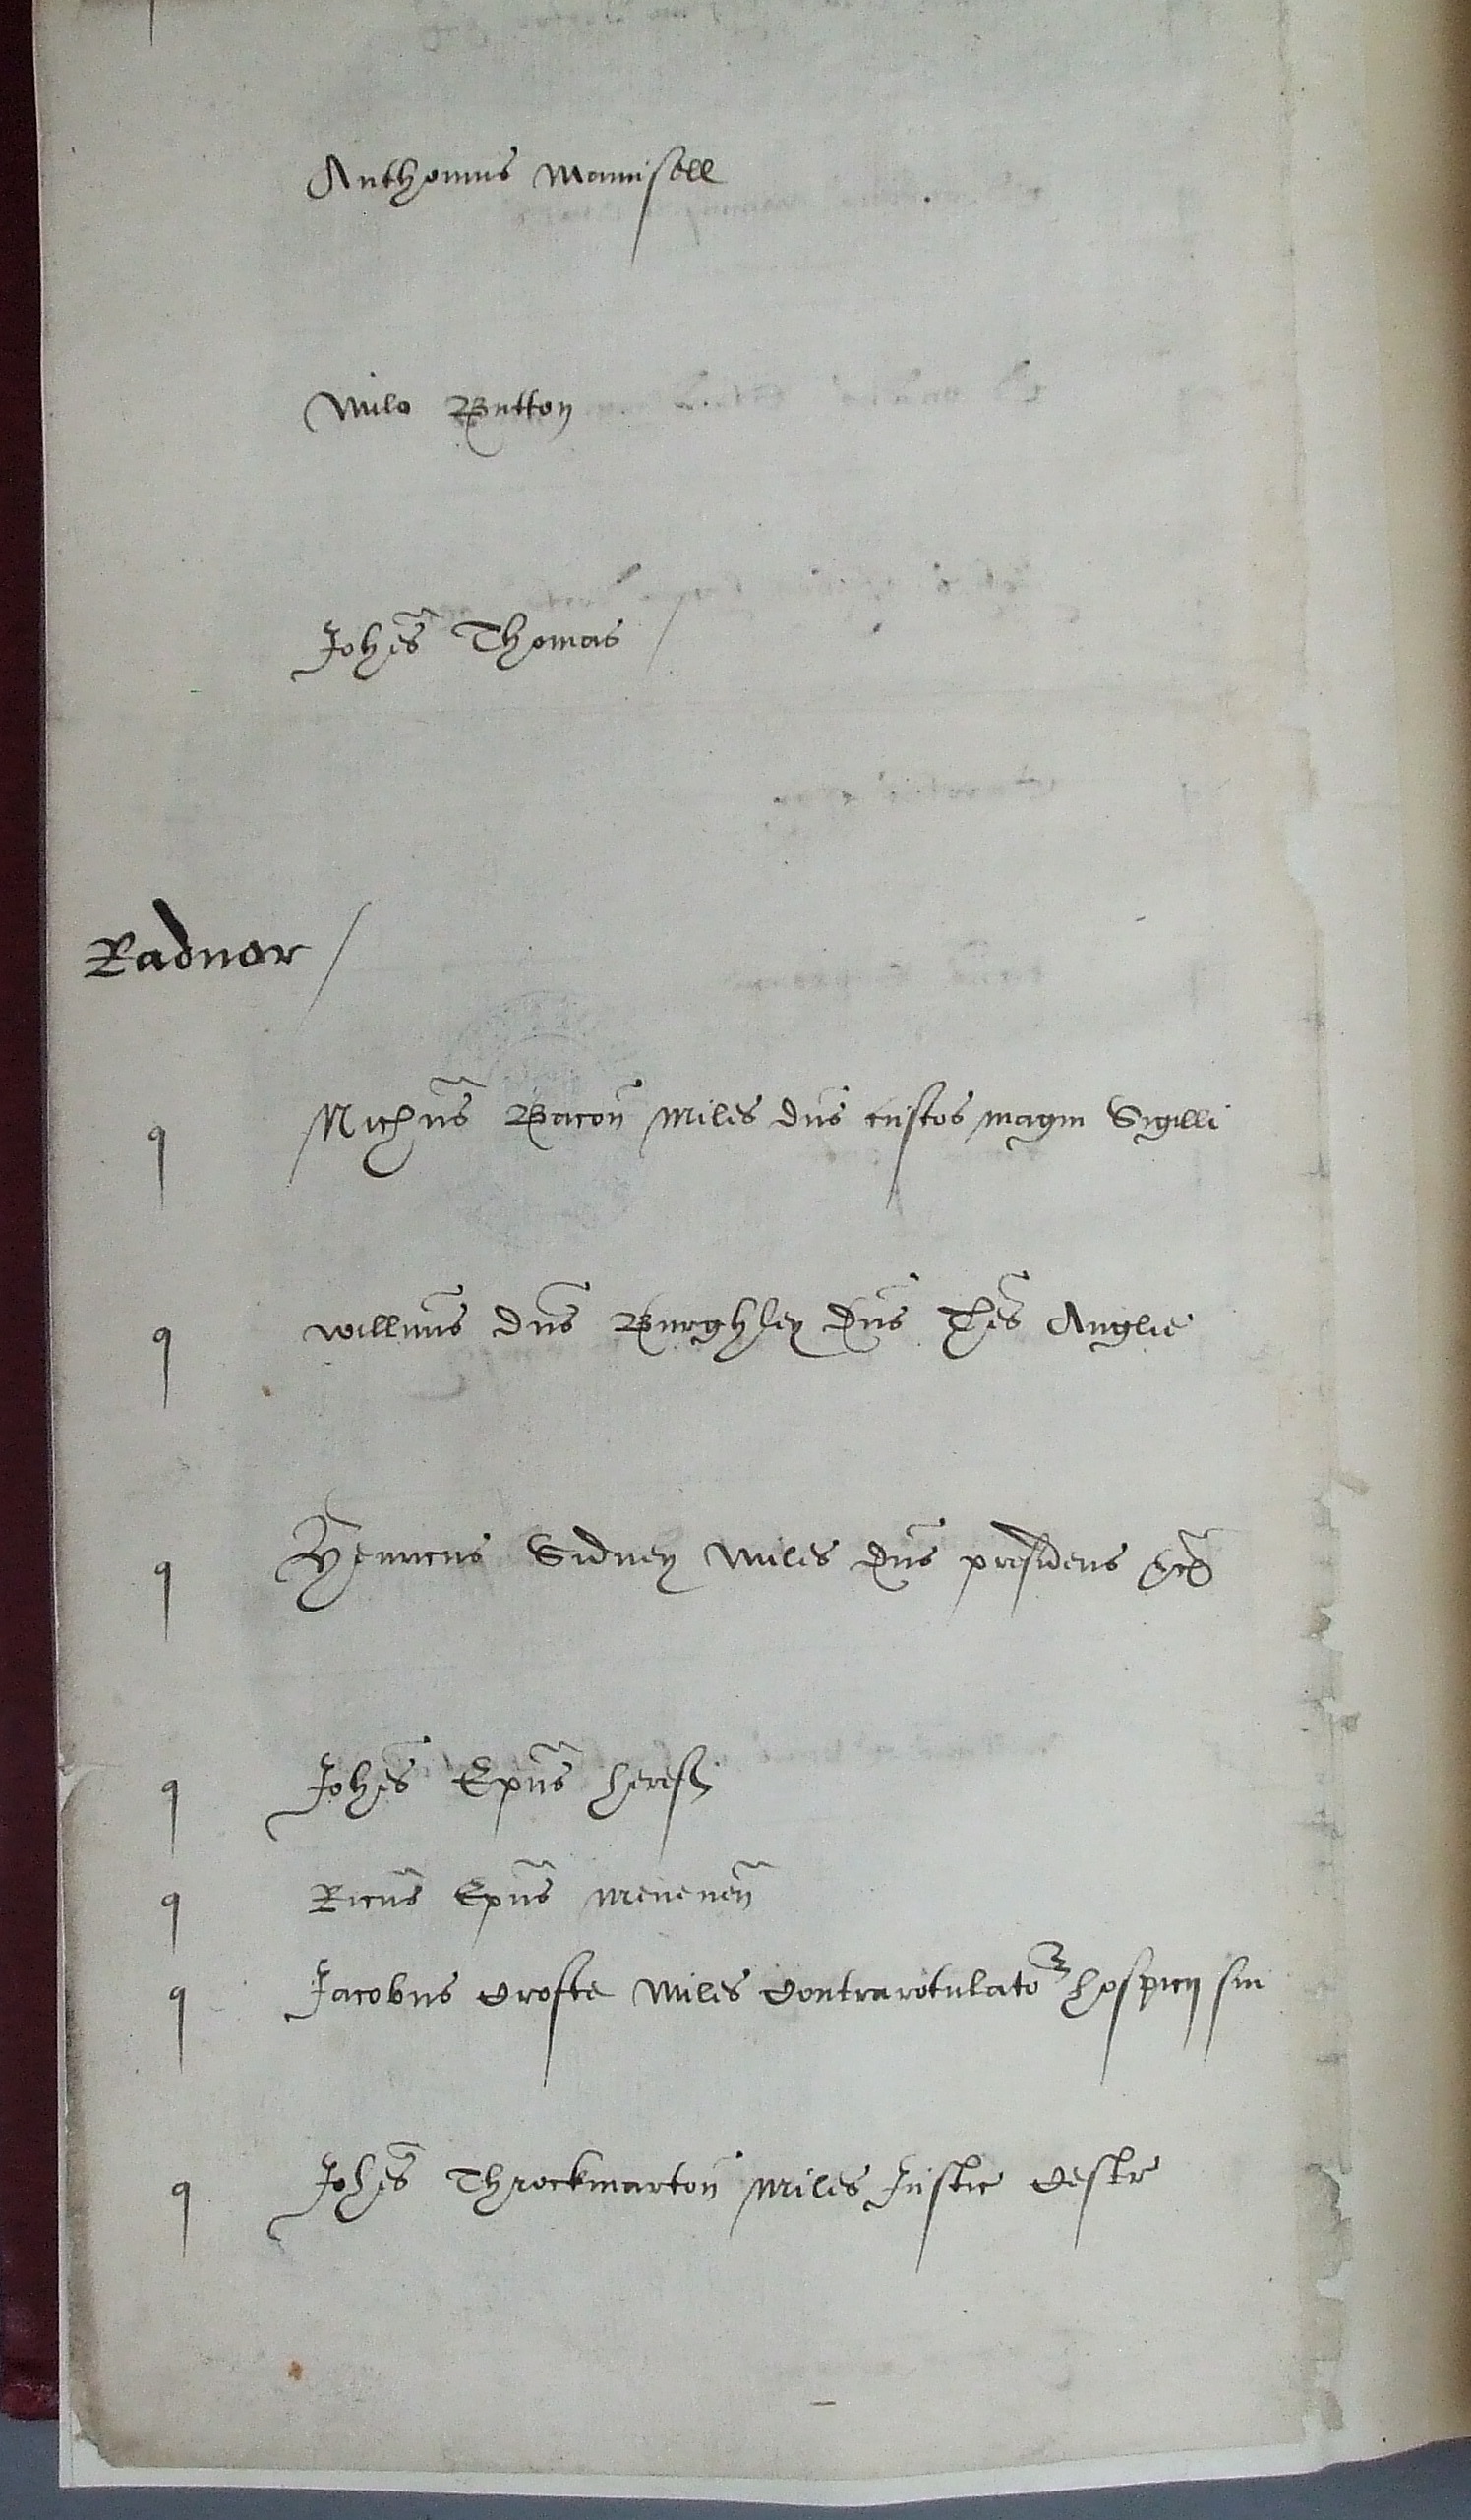 Anthonius Mannsell
Milo Button
Joh̃es Thomas /
Radnor /
q Nich̃us Bacoñ Miles dñs custos magni Sigilli
q Willm̃us dñs Burghley dñs Thẽs Anglie
q Henricus Sidney Miles dñs presidens &c̃
q Joh̃es Ep̃us heref
q Ricũs Ep̃us Meneueñ
q Jacobus Crofte Miles Contrarotulator hospicij sui
q Joh̃es Throckmartoñ Miles Justic Cestr